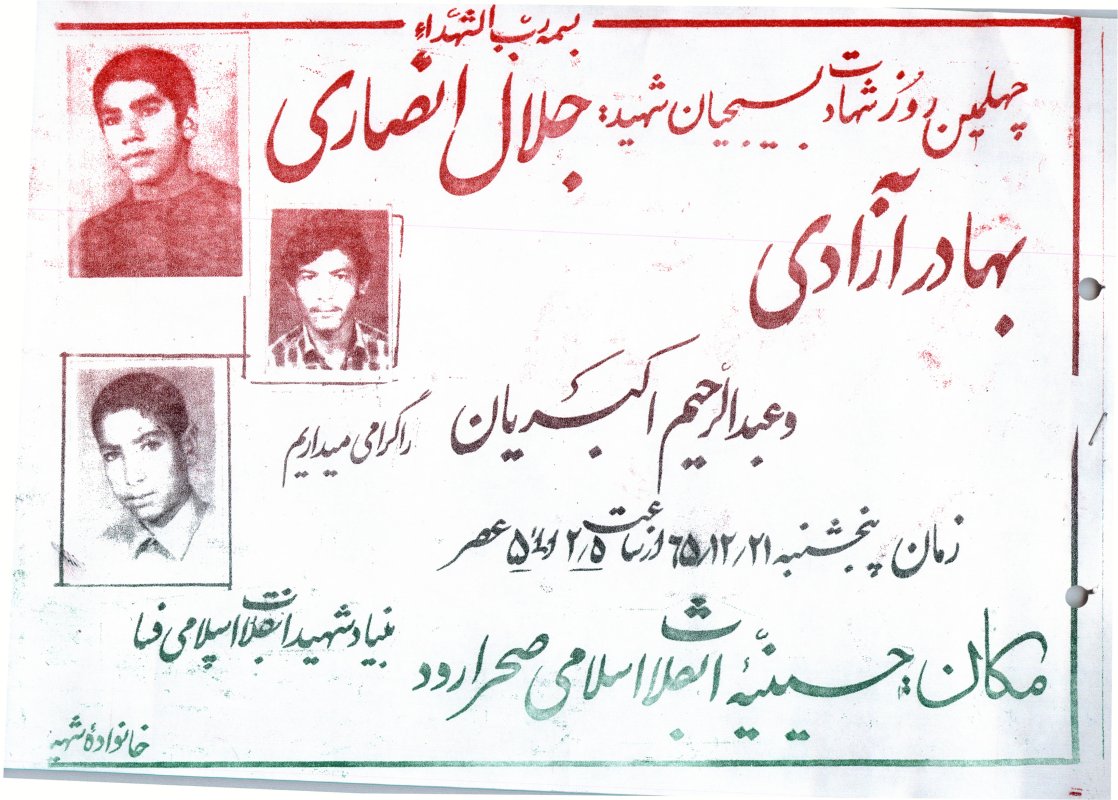 بسمه رب الشهداء
چهلمین روز شهادت بسیجیان شهید: جلال انصاری
بهادر آزادی
و عبدالرحیم اکبریان را گرامی میداریم
زمان پنجشنبه ۶۵/۱۲/۲۱ از ساعت ۲/۵ الی ۵ عصر
مکان: حسینیه انقلاب اسلامی صحرارود
بنیاد شهید انقلاب اسلامی فسا
خانواده شهید